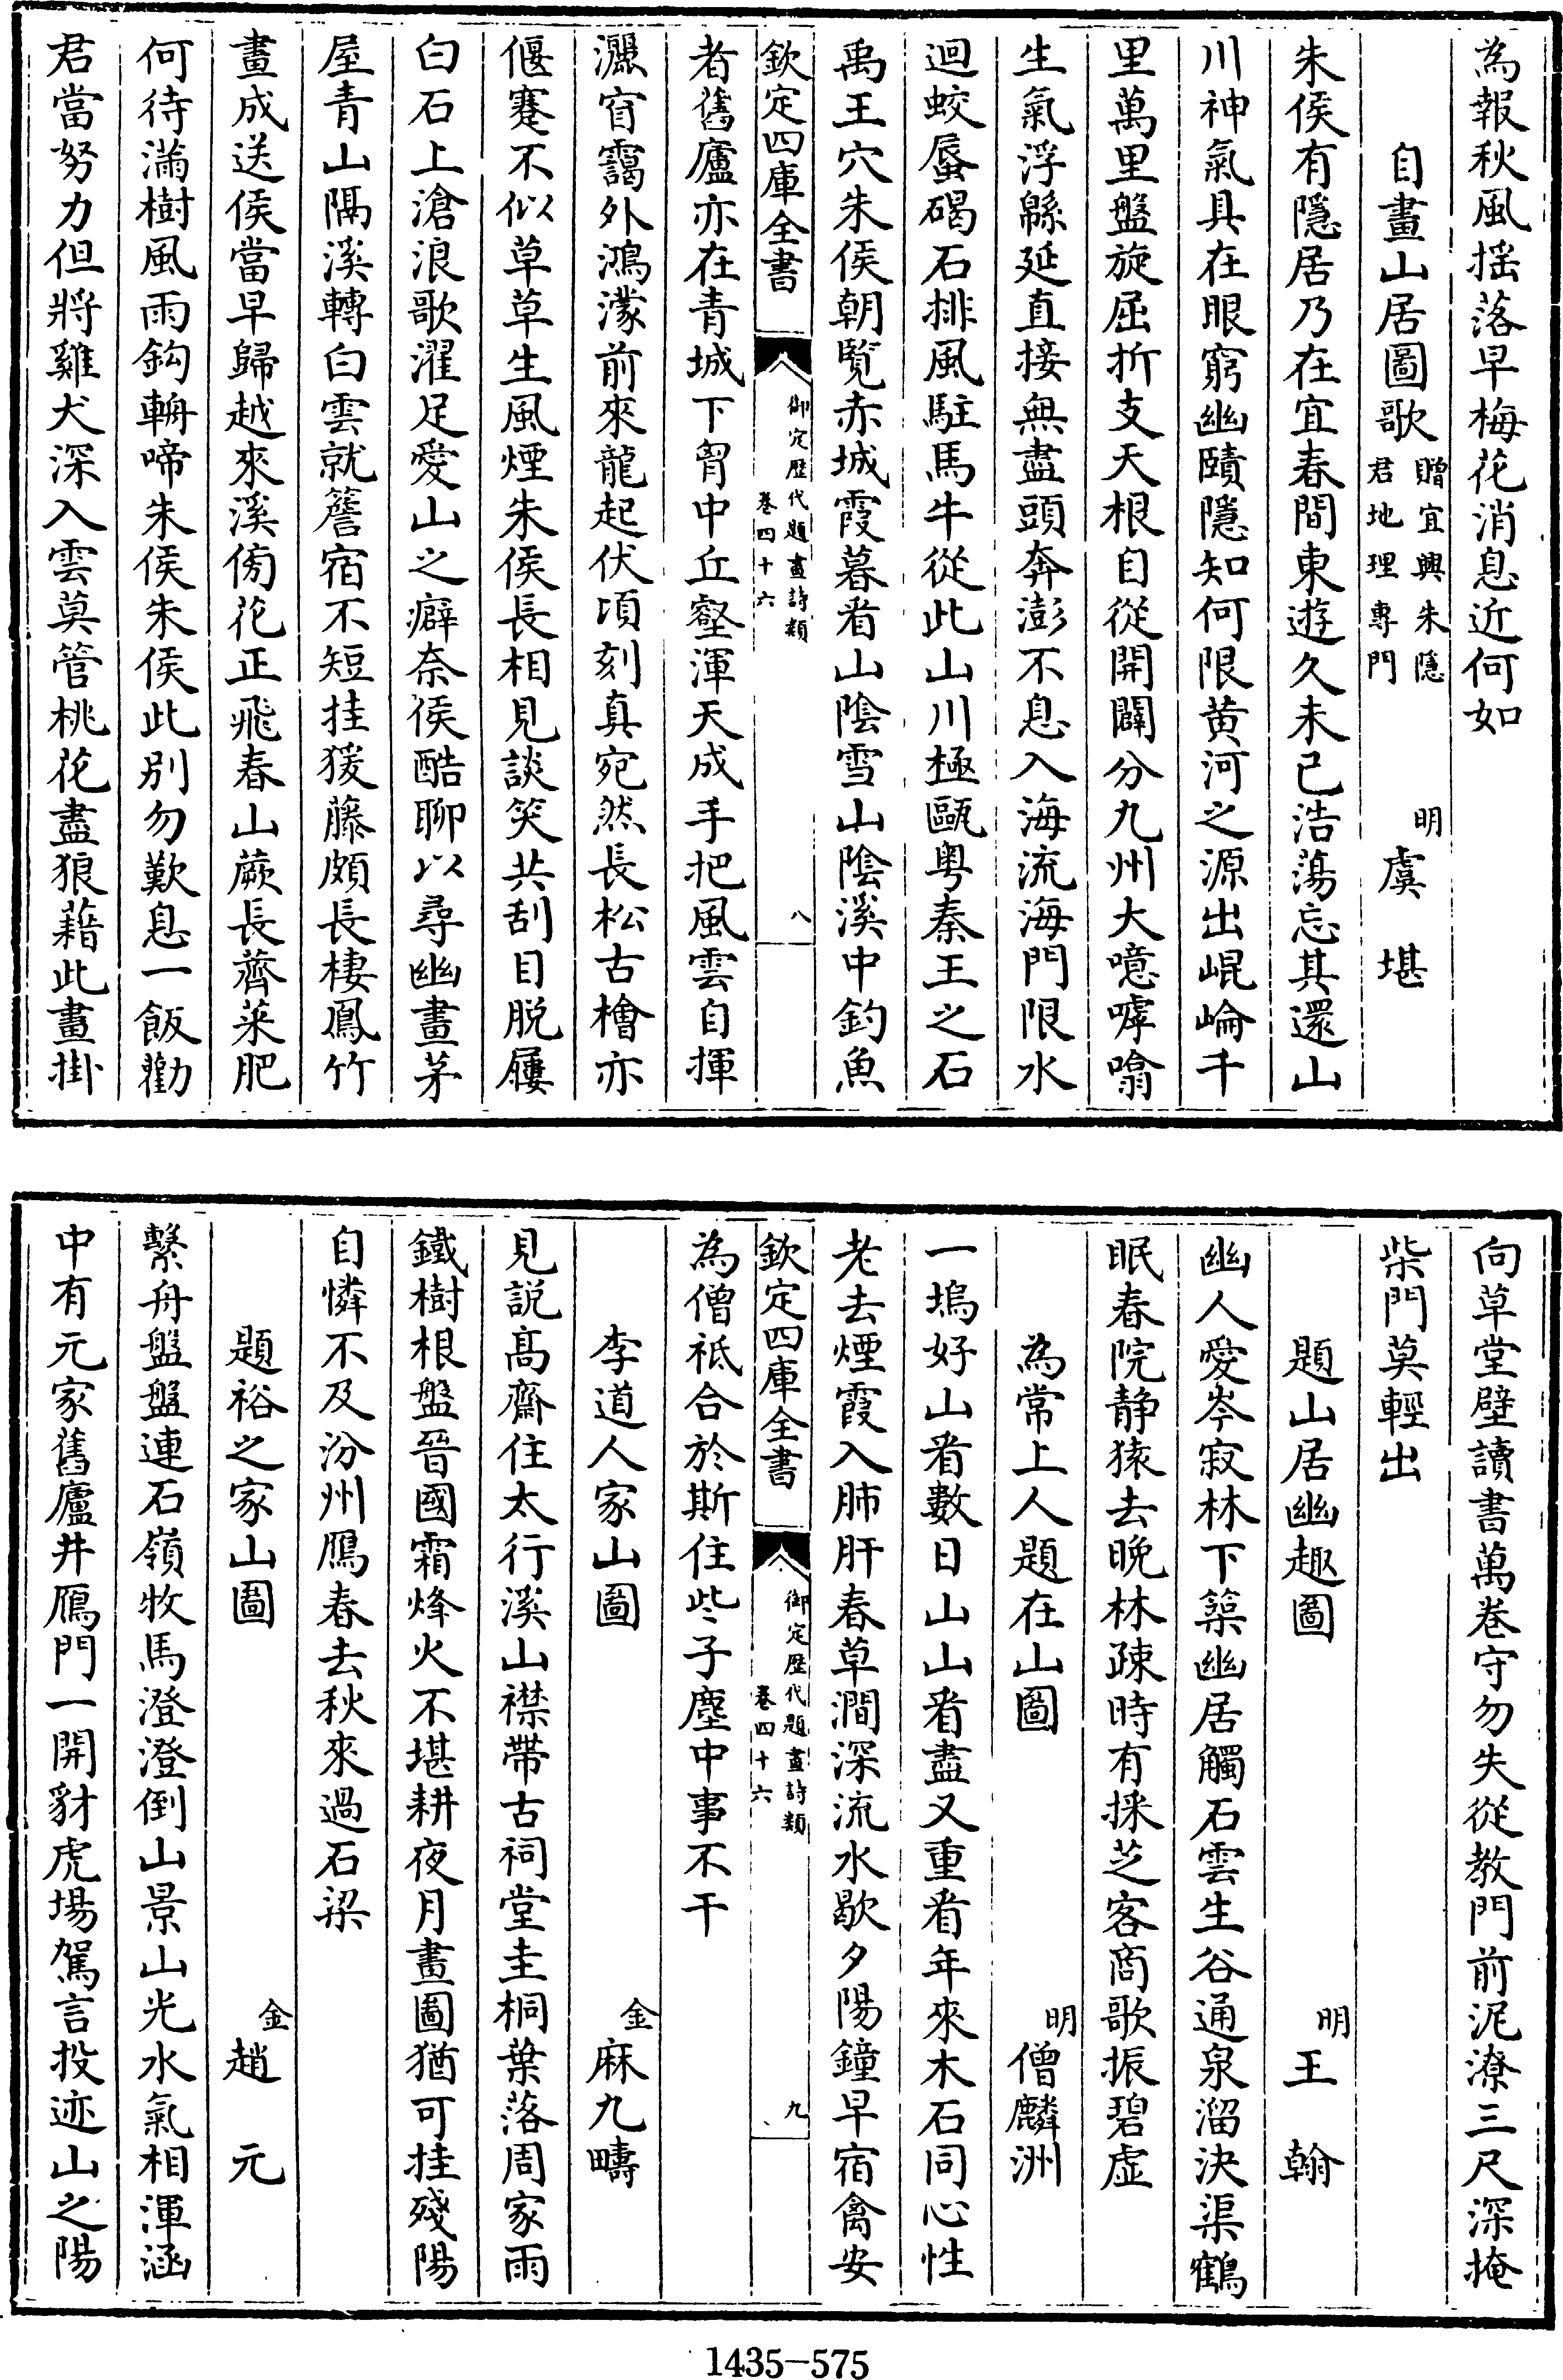 為報秋風揺落早梅花消息近何如
自畫山居圖歌贈宜興朱隱君地理專門 明虞堪
朱侯有隱居乃在宜春間東遊久未已浩蕩忘其還山
川神氣具在眼窮幽賾隱知何限黄河之源出崐崘千
里萬里盤旋屈折支天根自從開闢分九州大噫嘑噏
生氣浮緜延直接無盡頭奔澎不息入海流海門限水
迴蛟蜃碣石排風駐馬牛從此山川極甌粤秦王之石
禹王穴朱侯朝覽赤城霞暮看山陰雪山陰溪中釣魚
欽定四庫全書 御定歴代題畫詩類 卷四十六 八
者舊廬亦在青城下胷中丘壑渾天成手把風雲自揮
灑窅靄外鴻濛前來龍起伏頃刻真宛然長松古檜亦
偃蹇不似草草生風煙朱侯長相見談笑共刮目脱屨
白石上滄浪歌濯足愛山之癖奈侯酷聊以尋幽畫茅
屋青山隔溪轉白雲就簷宿不短挂猨藤頗長棲鳳竹
畫成送侯當早歸越來溪傍花正飛春山蕨長薺菜肥
何待滿樹風雨鈎輈啼朱侯朱侯此别勿歎息一飯勸
君當努力但將雞犬深入雲莫管桃花盡狼藉此畫掛
向草堂壁讀書萬卷守勿失從教門前泥潦三尺深掩
柴門莫輕出
題山居幽趣圖 明王翰
幽人愛岑寂林下築幽居觸石雲生谷通泉溜決渠鶴
眠春院静猿去晚林疎時有採芝客商歌振碧虛
為常上人題在山圖 明僧麟洲
一塢好山看數日山山看盡又重看年來木石同心性
老去煙霞入肺肝春草澗深流水歇夕陽鐘早宿禽安
欽定四庫全書 御定歴代題畫詩類 卷四十六 九
為僧祇合於斯住些子塵中事不干
李道人家山圖 金麻九疇
見説髙齋住太行溪山襟帶古祠堂圭桐葉落周家雨
鐵樹根盤晉國霜烽火不堪耕夜月畫圖猶可挂殘陽
自憐不及汾州鴈春去秋來過石梁
題裕之家山圖 金趙元
繫舟盤盤連石嶺牧馬澄澄倒山景山光水氣相渾涵
中有元家舊廬井鴈門一開豺虎場駕言投迹山之陽
1435-575